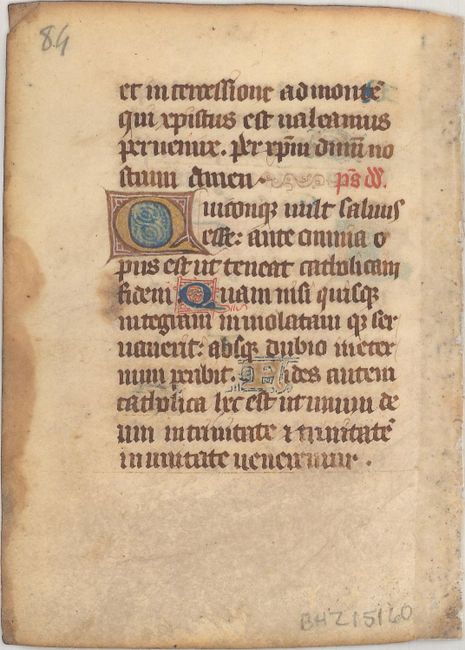 84
et intercessione ad monte
qui xpistus est ualeamus
peruenire. per xpm dnm no
strum amen. ps dd.
Quicunq uult saluus
esse: ante omnia o
pus est ut teneat catholicam
fidem Quam nisi quisq
integram inuiolatam q ser
uauerit: absq dubio in eter
num peribit. Fides autem
catholica hec est ut unum de
um in trinitate & trinitate
in unitate ueneremur.
BHZ15160